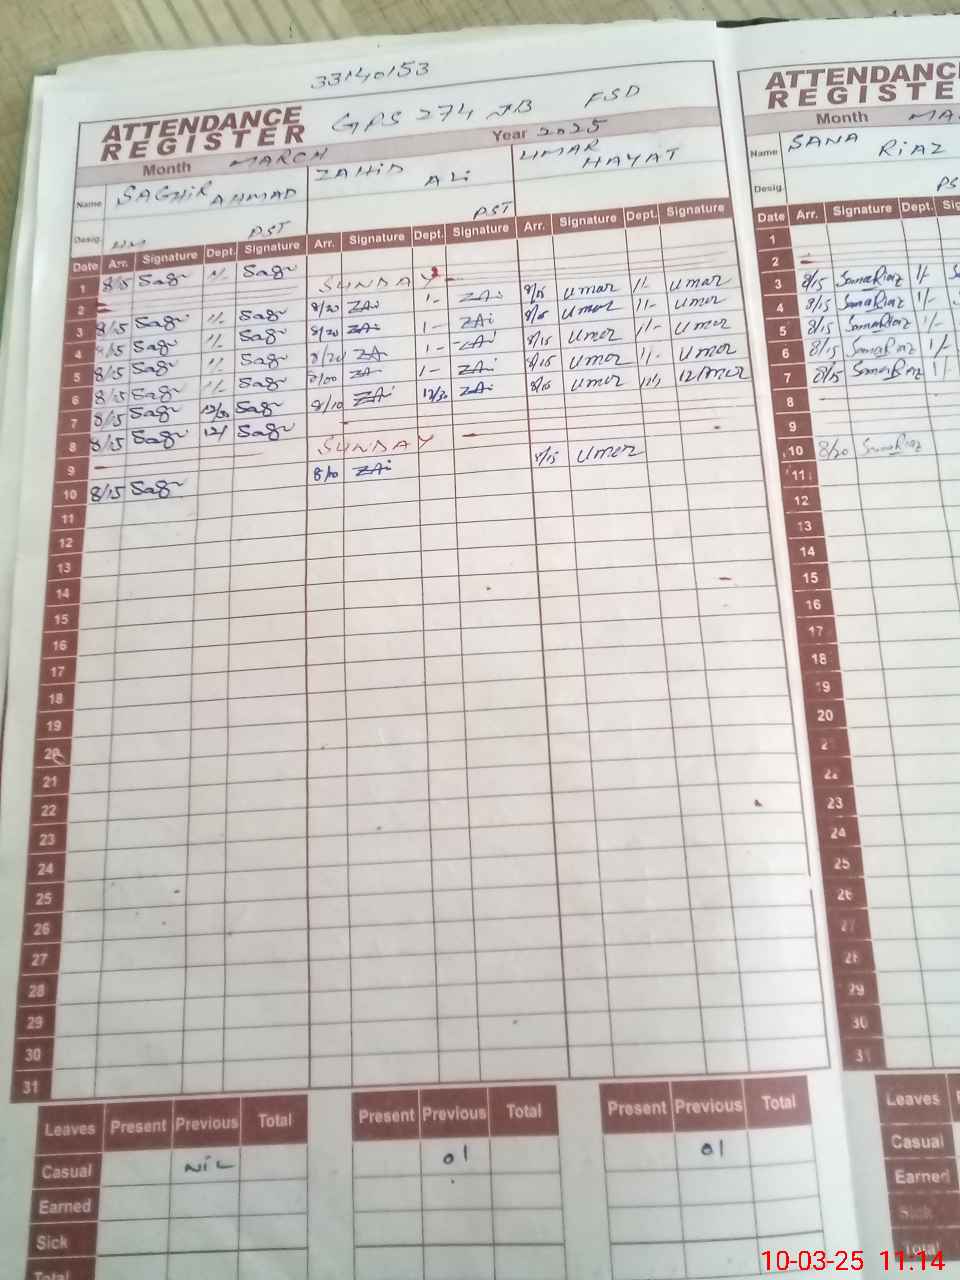 33140153
ATTENDANCE REGISTER GPS 274 JB FSD
Month MARCH Year 2025
Name SAGHIR AHMAD ZAHID ALI UMAR HAYAT
Desig. HM PST PST
Date Arr. Signature Dept. Signature Arr. Signature Dept. Signature Arr. Signature Dept. Signature
1 8/15 Sagr 1/- Sagr
2 SUNDAY
3 8/15 Sagr 1/- Sagr 8/20 ZAi 1- ZAi 8/15 umar 1/- umar
4 8/15 Sagr 1/- Sagr 8/20 ZAi 1- ZAi 8/15 umar 1/- umar
5 8/15 Sagr 1/- Sagr ZA 1- ZAi 8/15 umar 1/- umar
6 8/15 Sagr 1/- Sagr ZA 1- ZAi 8/15 umar 1/- umar
7 8/15 Sagr Sagr 8/10 ZAi 12/30 ZAi umar umar
8 8/15 Sagr 12/ Sagr
9 SUNDAY
10 8/15 Sagr ZAi 8/15 umar
11
12
13
14
15
16
17
18
19
20
21
22
23
24
25
26
27
28
29
30
31
Leaves Present Previous Total Present Previous Total Present Previous Total
Casual NIL 01 01
Earned
Sick
Total
ATTENDANC
REGISTE
Month MA
Name SANA RIAZ
Desig. PS
Date Arr. Signature Dept. Sig
1
2
3 8/15 SanaRiaz 1/-
4 8/15 SanaRiaz 1/-
5 8/15 SanaRiaz 1/-
6 8/15 SanaRiaz 1/-
7 8/15 SanaRiaz 1/-
8
9
10 8/20 SanaRiaz
11
12
13
14
15
16
17
18
19
20
2
22
23
24
25
26
27
28
29
30
31
Leaves
Casual
Earned
Sick
Total
10-03-25 11.14